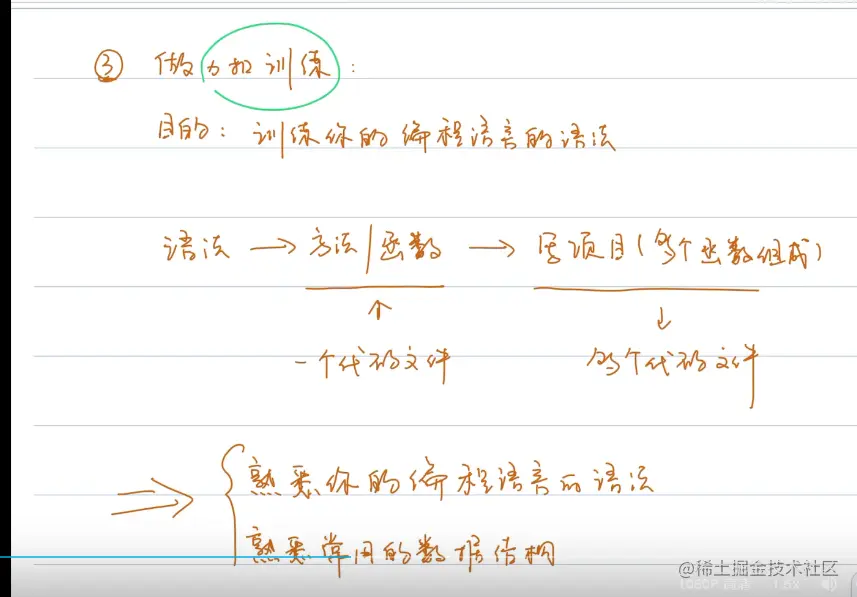 ③ 做力扣训练:
目的: 训练你的编程语言的语法
语法 → 方法|函数 → 写项目(多个函数组成)
↑ ↓
一个代码文件 多个代码文件
⇒ { 熟悉你的编程语言的语法
熟悉常用的数据结构
@稀土掘金技术社区
1080P 高清 1.5x